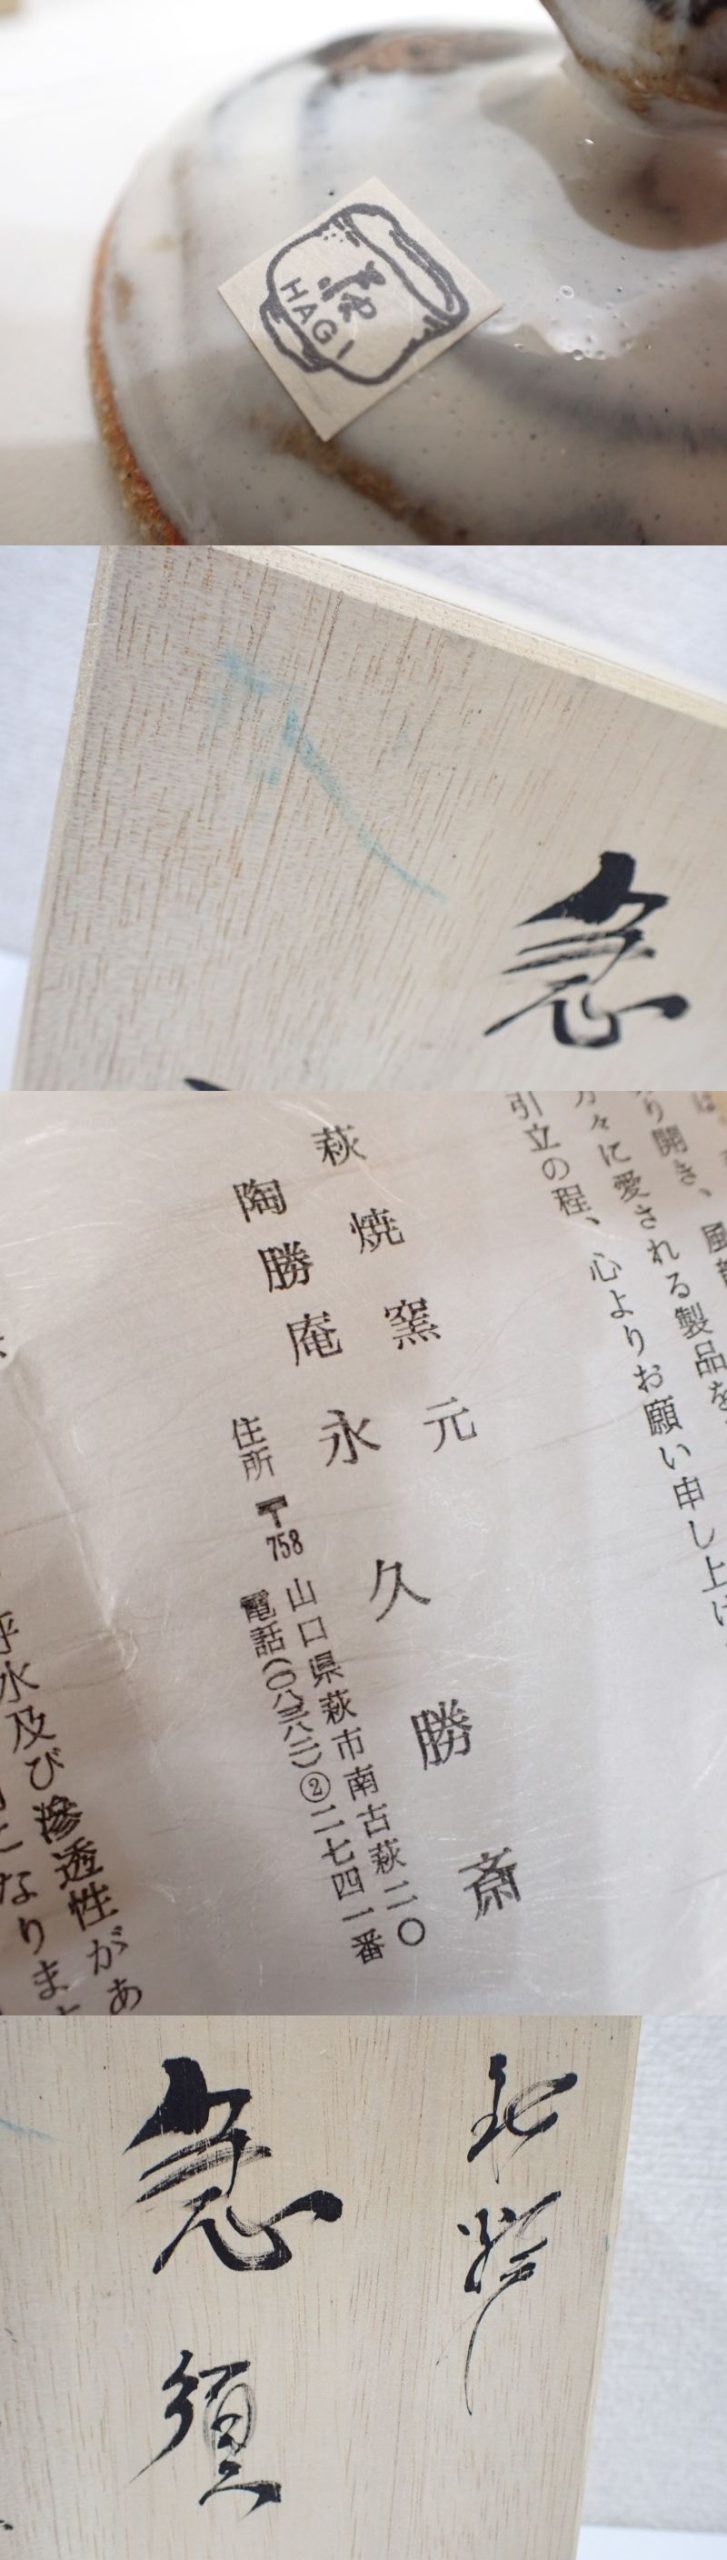 萩
HAGI
急
引立の程、心よりお願い申し上げ
々に愛される製品を
り開き、風
萩焼窯元
陶勝庵 永久勝斎
住所 〒758 山口県萩市南古萩二〇
電話(〇八三八二)②二七四一番
呼水及び滲透性があ
になりま
萩焼
急須